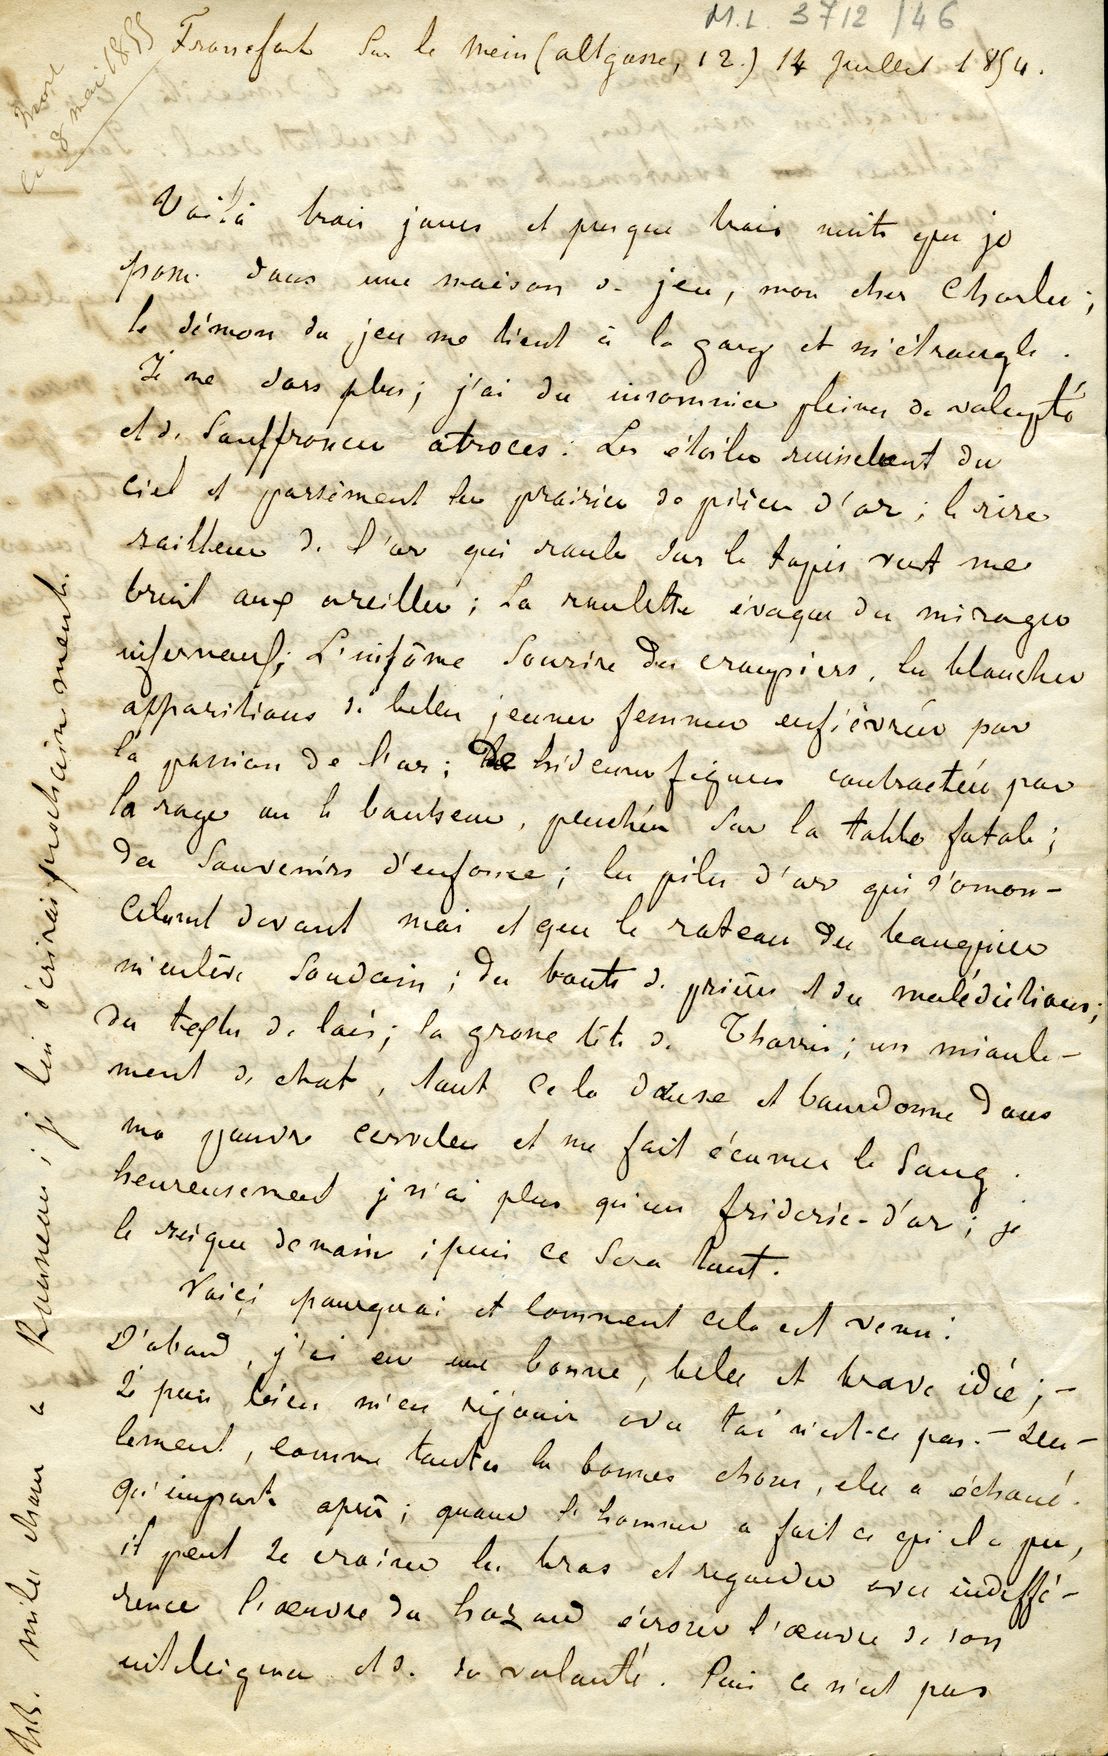 M.L. 3712 /46
Mort
le 8 mai 1855
Francfort sur le Mein (altgasse, 12.) 14 Juillet 1854.
Voilà trois jours et presque trois nuits que je
passe dans une maison de jeu, mon cher Charles ;
le démon du jeu me tient à la gorge et m'étrangle.
Je ne dors plus ; j'ai des insomnies pleines de volupté
et de souffrances atroces : Les étoiles ruissellent du
ciel et parsèment les prairies de pièces d'or ; le rire
railleur de l'or qui roule sur le tapis vert me
bruit aux oreilles ; La roulette évoque des mirages
infernaux ; L'infâme sourire des croupiers, les blanches
apparitions de belles jeunes femmes enfiévrées par
la passion de l'or ; De hideuses figures contractées par
la rage ou le bonheur, penchées sur la table fatale ;
des souvenirs d'enfance ; les piles d'or qui s'amon-
cèlent devant moi et que le rateau du banquier
m'enlève soudain ; des bouts de prières et des malédictions ;
des textes de lois ; la grosse tête de ; un miaule-
ment de chat, tout cela danse et bourdonne dans
ma pauvre cervelle et me fait écumer le sang.
heureusement je n'ai plus qu'un frideric-d'or ; je
le risque demain ; puis ce sera tout.
Voici pourquoi et comment cela est venu :
D'abord, j'ai eu une bonne, belle et brave idée ; -
Je puis bien m'en réjouir avec toi n'est-ce pas. - Seu-
lement, comme toutes les bonnes choses, elle a échoué.
Qu'importe après ; quand l'homme a fait ce qu'il a pu,
il peut se croiser les bras et regarder avec indiffé-
rence l'œuvre du hazard écraser l'œuvre de son
intelligence et de sa volonté. Puis ce n'est pas
NB. mille choses à Rousseau ; je lui écrirai prochainement.